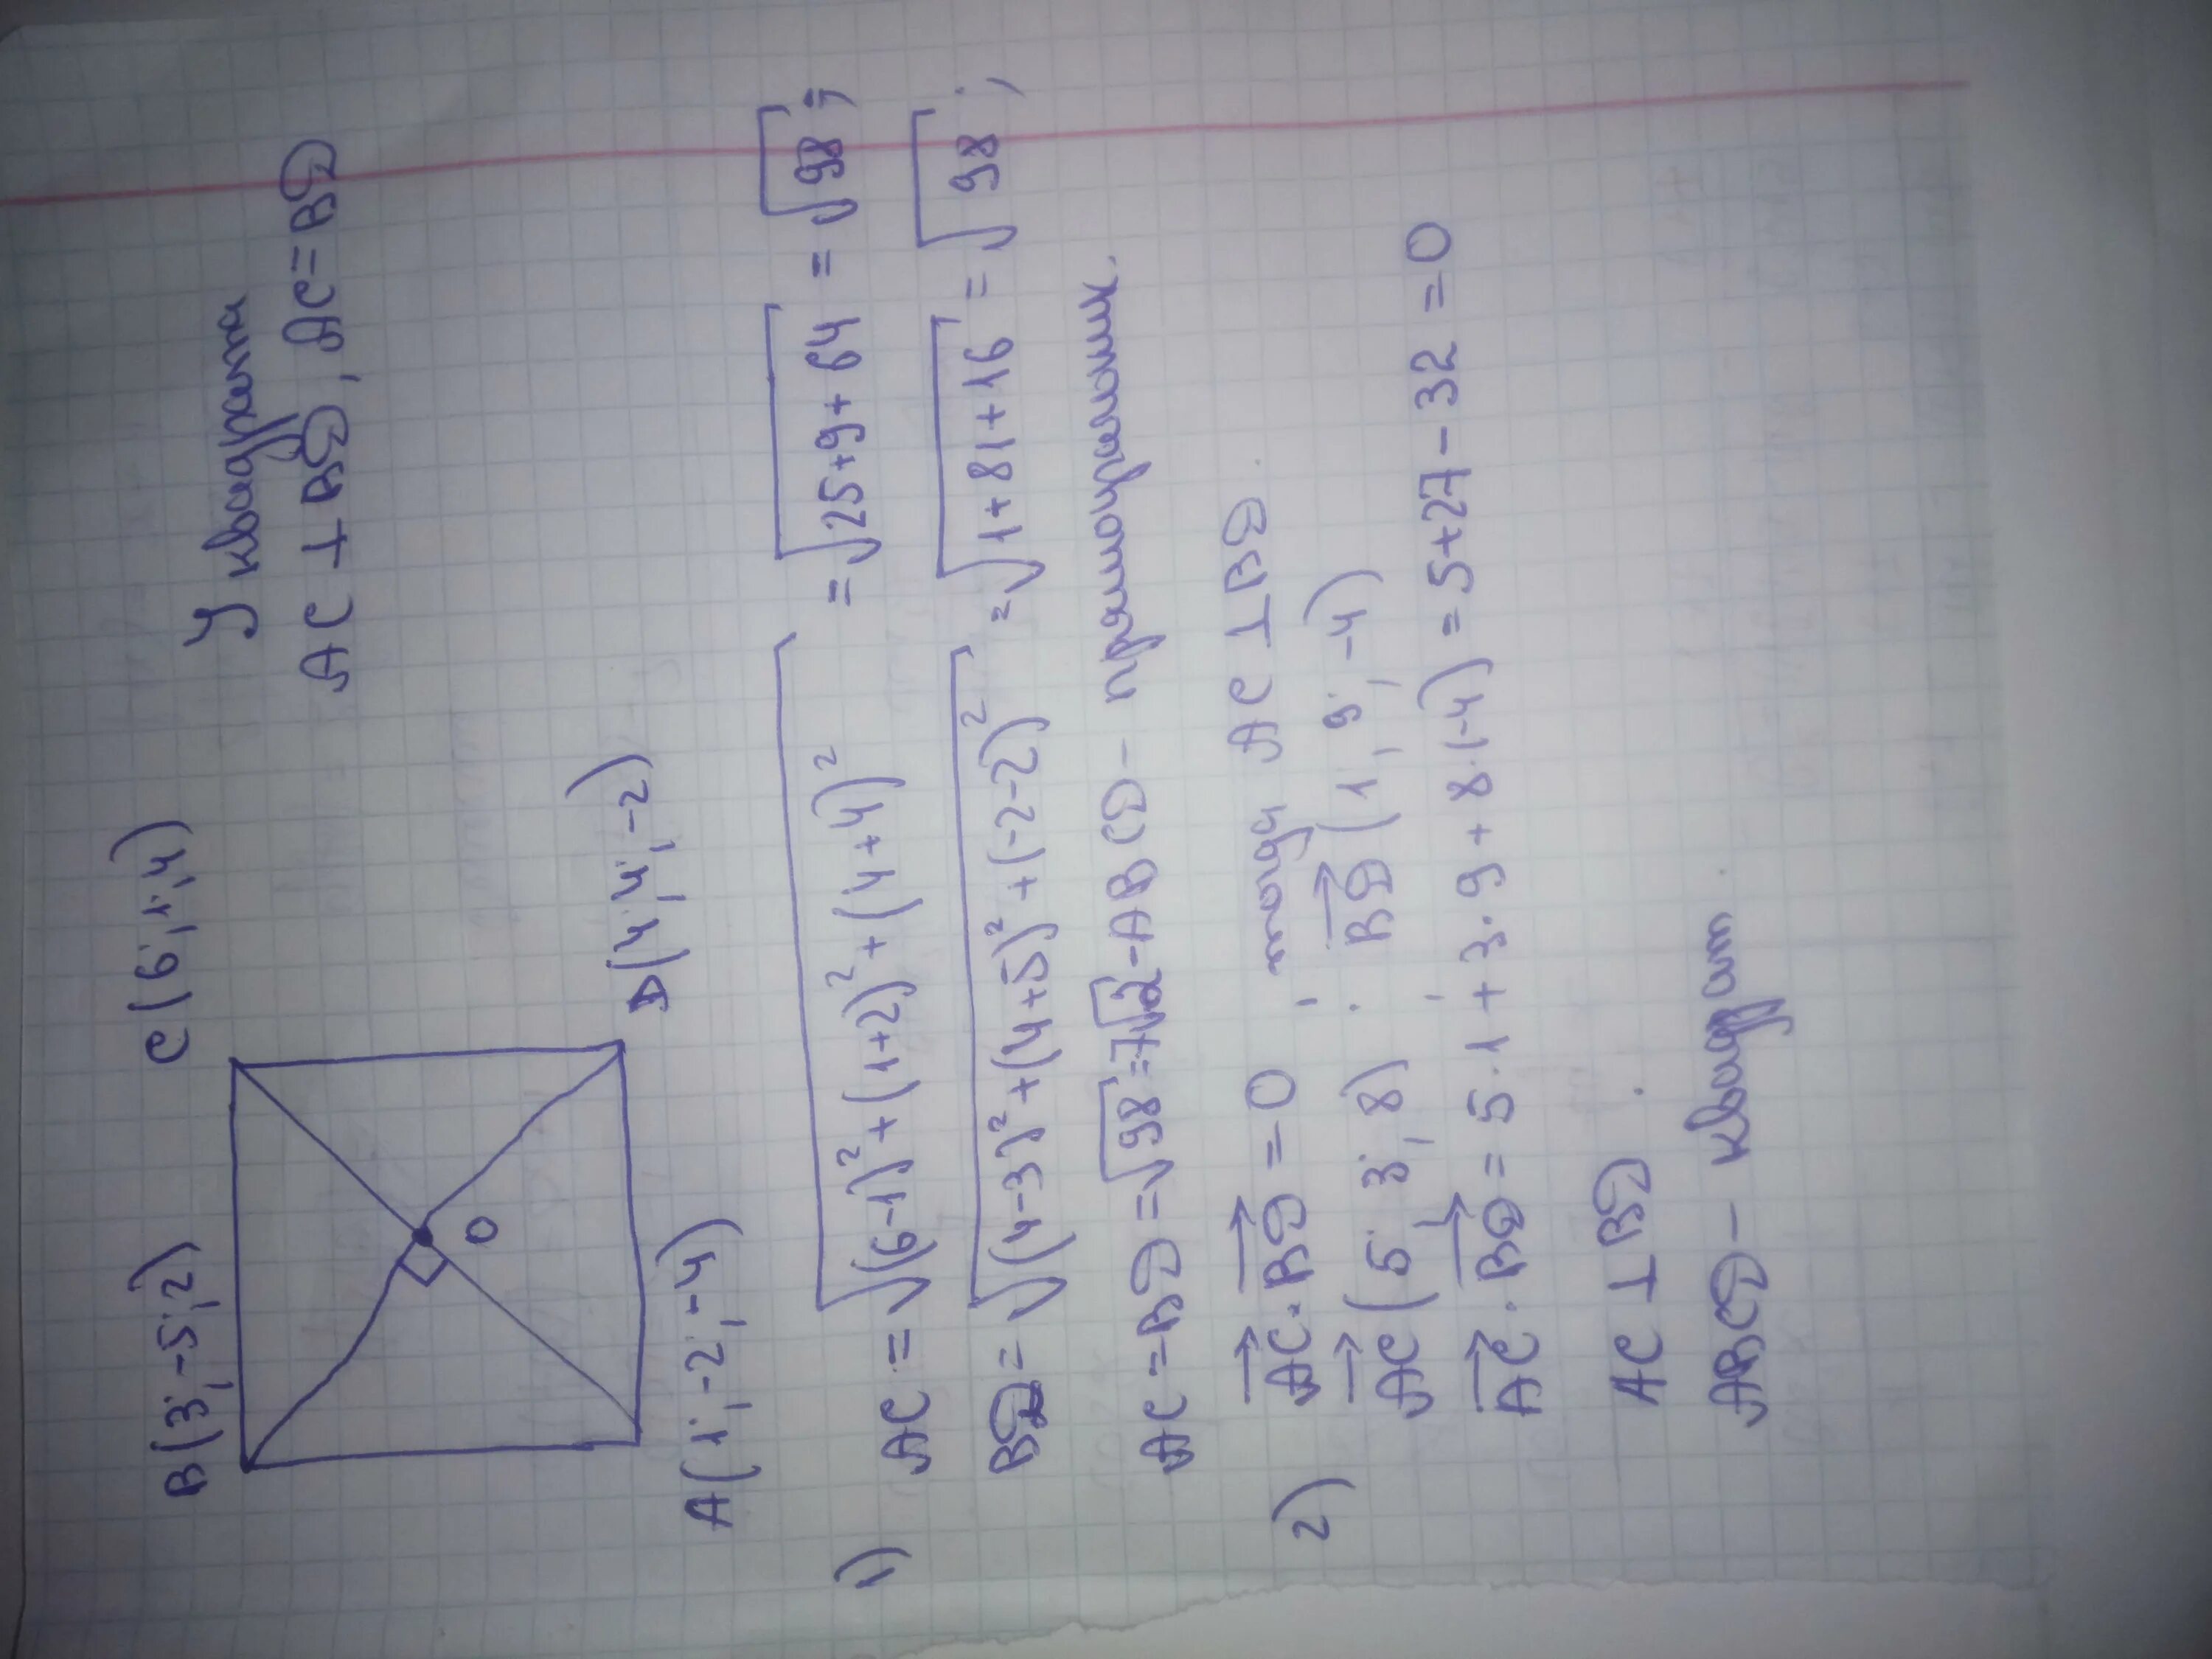 B(3;-5;2) C(6;1;4) У квадрата
AC ⊥ BD, AC=BD
O
A(1;-2;-4) D(4;4;-2)
1) AC = √(6-1)²+(1+2)²+(4+4)² = √25+9+64 = √98;
BD = √(4-3)²+(4+5)²+(-2-2)² = √1+81+16 = √98;
AC = BD = √98 = 7√2 - ABCD - прямоугольник.
2) AC⃗·BD⃗ = 0; тогда AC ⊥ BD.
AC⃗(5;3;8); BD⃗(1;9;-4)
AC⃗·BD⃗ = 5·1+3·9+8·(-4) = 5+27-32 = 0
AC ⊥ BD.
ABCD - квадрат.